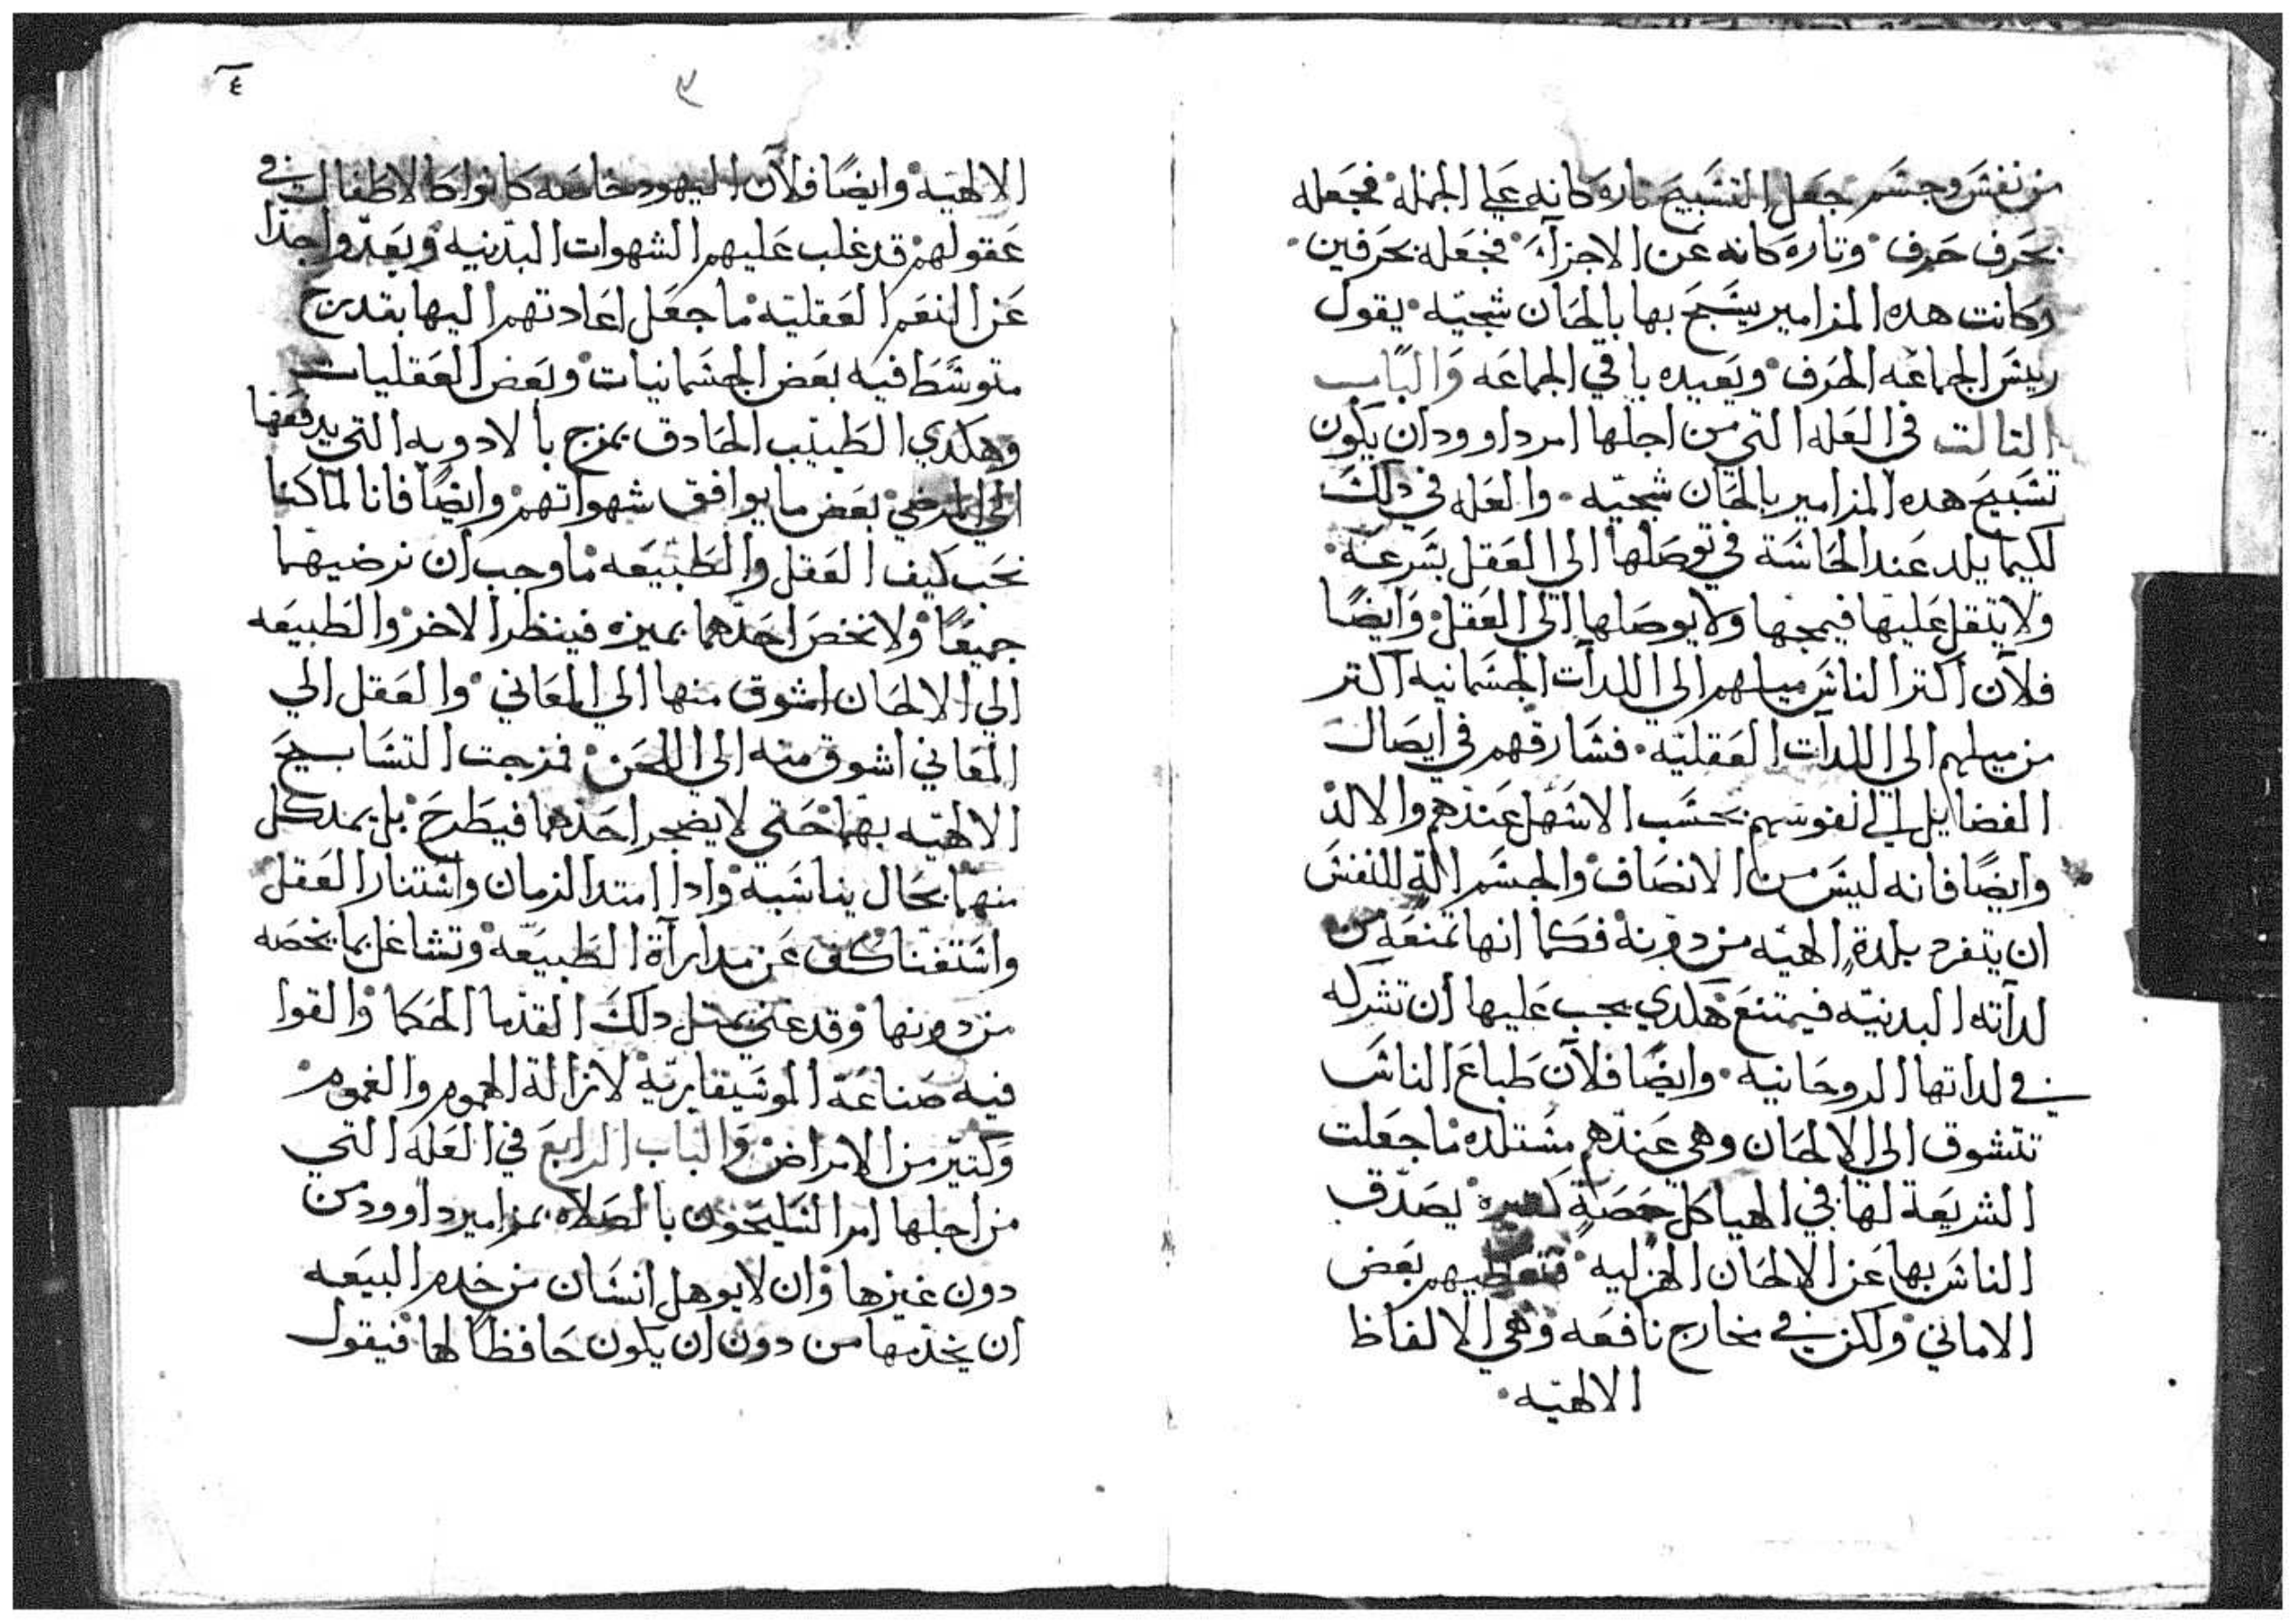 من نفس وجسم جعل التسبيح تاره كانه علي الجمله فجعله
بحرف حرف وتاره كانه عن الاجزآء فجعله بحرفين
وكانت هده المزامير يسبح بها بالحان شجيه يقول
ريس الجماعه الحرف ويعيده باقي الجماعه والباب
التالت في العله التي من اجلها امر داوود ان يكون
تسبيح هده المزامير بالحان شجيه والعله في دلك
لكيما يلد عند الحاسة في توصلها الي العقل بسرعه
ولا يتقل عليها فيمجها ولا يوصلها الي العقل وايضًا
فلآن اكتر الناس ميلهم الي اللدآت الجسمانيه اكتر
من ميلهم الي اللدآت العقليه فسارقهم في ايصال
الفضايل الي نفوسهم بحسب الاسهل عندهم والالد
وايضًا فانه ليس من الانصاف والجسم الة للنفس
ان يتفرد بلدة الهيه من دونه فكما انها تمنعه من
لدآته البدنيه فيمتنع هكدي يجب عليها ان تشركه
في لداتها الروحانيه وايضًا فلآن طباع الناس
تتشوق الي الالحان وهي عندهم مستلده ما جعلت
الشريعة لها في الهياكل حصةٍ يصدف
الناس بها عن الالحان الهزليه فتعطيهم بعض
الاماني ولكن في مخارج نافعه وهي الالفاظ
الالهيه
٤
٣
الالهيه وايضًا فلآن اليهود خاصه كانوا كالاطفال في
عقولهم قد غلب عليهم الشهوات البدنيه وبعدوا جدًا
عن النعم العقليه ما جعل اعادتهم اليها بتدرج
متوسط فيه بعض الجسمانيات وبعض العقليات
وهكدي الطبيب الحادق يمزج بالادويه التي يدفعها
الي المرضي بعض ما يوافق شهواتهم وايضًا فانا لما كنا
نحب كيف العقل والطبيعه ما وجب ان نرضيهما
جميعًا ولا نخص احدهما بميزه فينظر الاخر والطبيعه
الي الالحان اشوق منها الي المعاني والعقل الي
المعاني اشوق منه الي اللحن فمزجت التسابيح
الالهيه بهما حتي لا يضجر احدهما فيطرح بل يمد كل
منهما بحال يناسبه وادا امتد الزمان واستنار العقل
واستفنا كف عن مدارآة الطبيعه وتشاغل بما يخصه
من دونها وقد عني بمتل دلك القدما الحكما والقوا
فيه صناعة الموسيقايريه لازالة الهموم والغموم
وكتير من الامراض والباب الرابع في العله التي
من اجلها امر السليحون بالصلاه بمزامير داوود من
دون غيرها وان لا يوهل انسان من خدم البيعه
ان يخدمها من دون ان يكون حافظًا لها فيقول